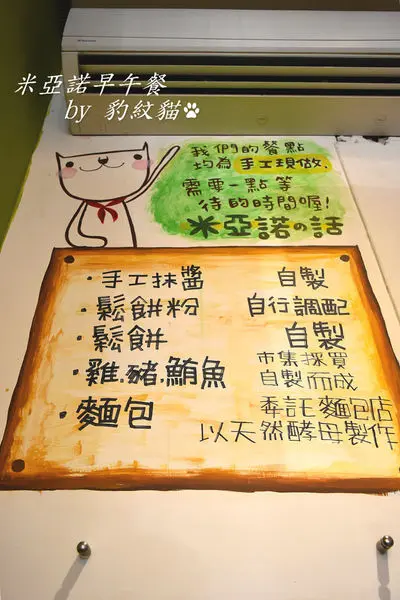 米亞諾早午餐
by 豹紋貓
我們的餐點
均為手工現做.
需要一點等
待的時間喔!
米亞諾の話
・手工抹醬 自製
・鬆餅粉 自行調配
・鬆餅 自製
・雞.豬.鮪魚 市集採買
自製而成
・麵包 委託麵包店
以天然酵母製作